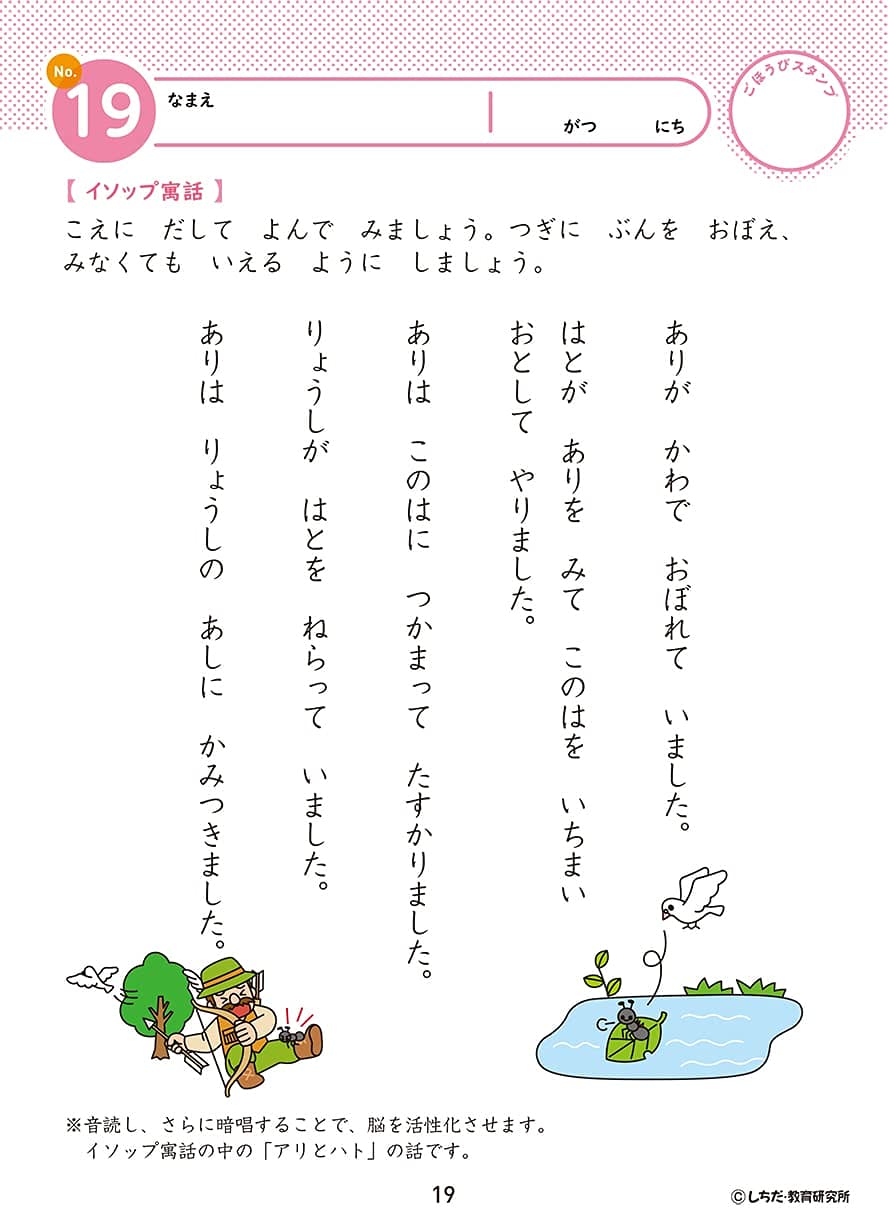 No.
19
なまえ
がつ　にち
ごほうびスタンプ
【 イソップ寓話 】
こえに　だして　よんで　みましょう。つぎに　ぶんを　おぼえ、
みなくても　いえる　ように　しましょう。
ありが　かわで　おぼれて　いました。
はとが　ありを　みて　このはを　いちまい
おとして　やりました。
ありは　このはに　つかまって　たすかりました。
りょうしが　はとを　ねらって　いました。
ありは　りょうしの　あしに　かみつきました。
※音読し、さらに暗唱することで、脳を活性化させます。
イソップ寓話の中の「アリとハト」の話です。
19
©しちだ・教育研究所